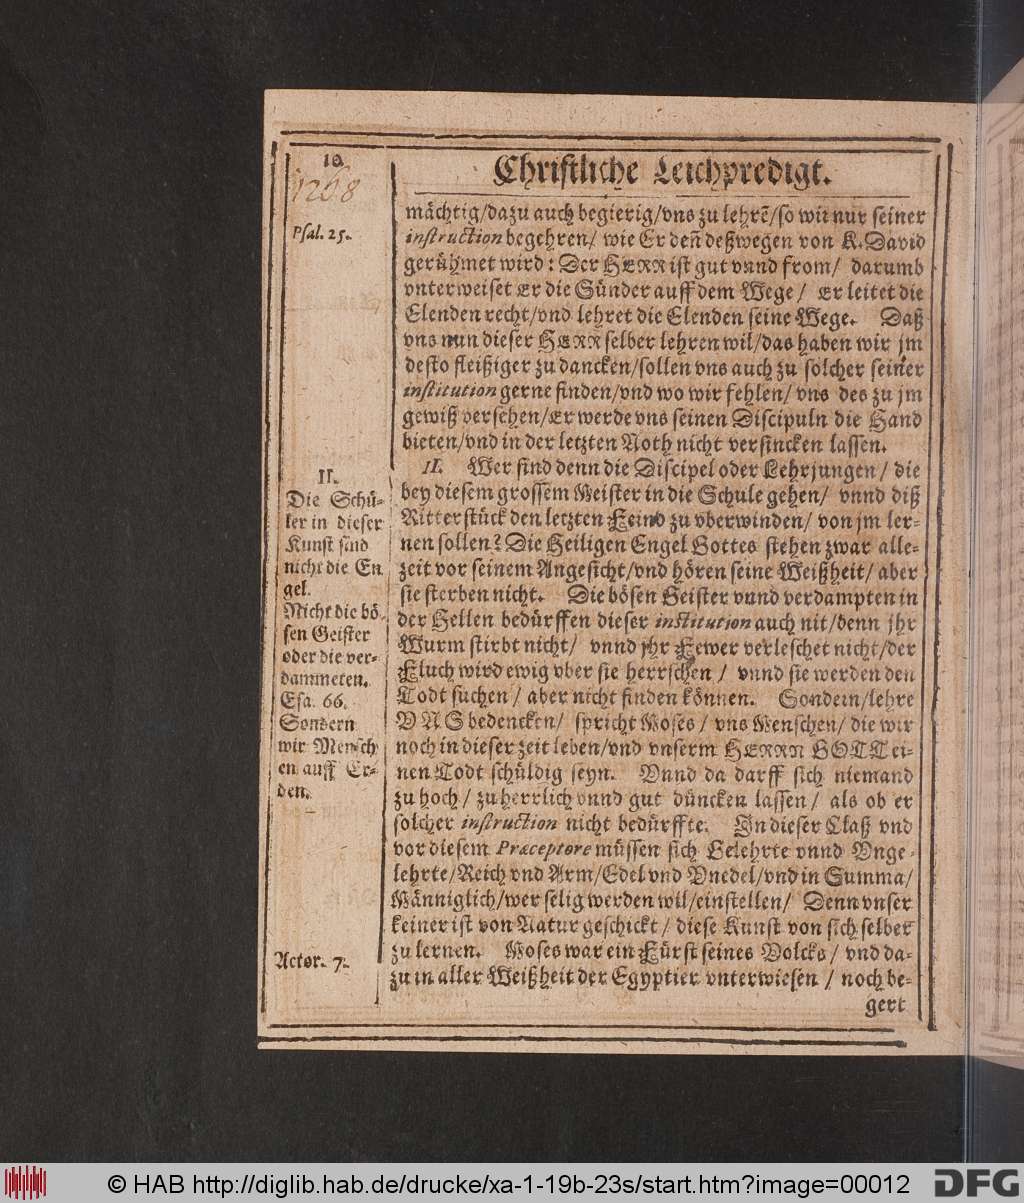 10.
1268
Christliche Leichpredigt.
Psal. 25.
mächtig/dazu auch begierig/vns zu lehrē/so wir nur seiner
instruction begehren/ wie Er deñ deßwegen von K. David
gerühmet wird: Der HERR ist gut vnnd from/ darumb
vnterweiset Er die Sünder auff dem Wege/ Er leitet die
Elenden recht/vnd lehret die Elenden seine Wege. Daß
vns nun dieser HERR selber lehren wil/das haben wir jm
desto fleißiger zu dancken/sollen vns auch zu solcher seiner
institution gerne finden/vnd wo wir fehlen/ vns des zu jm
gewiß versehen/Er werde vns seinen Discipuln die Hand
bieten/vnd in der letzten Noth nicht versincken lassen.
II. Wer sind denn die Discipel oder Lehrjungen/ die
bey diesem grossem Meister in die Schule gehen/ vnnd diß
Ritterstück den letzten Feind zu vberwinden/ von jm ler-
nen sollen? Die Heiligen Engel Gottes stehen zwar alle-
zeit vor seinem Angesicht/vnd hören seine Weißheit/ aber
sie sterben nicht. Die bösen Geister vnnd verdampten in
der Hellen bedürffen dieser institution auch nit/denn jhr
Wurm stirbt nicht/ vnnd jhr Fewer verleschet nicht/der
Fluch wird ewig vber sie herrschen/ vnnd sie werden den
Todt suchen/ aber nicht finden können. Sondern/lehre
VNS bedencken/ spricht Moses/ vns Menschen/ die wir
noch in dieser zeit leben/vnd vnserm HERRN GOTT ei-
nen Todt schüldig seyn. Vnnd da darff sich niemand
zu hoch/ zu herrlich vnnd gut düncken lassen/ als ob er
solcher instruction nicht bedürffte. In dieser Claß vnd
vor diesem Præceptore müssen sich Gelehrte vnnd Vnge-
lehrte/Reich vnd Arm/Edel vnd Vnedel/vnd in Summa/
Männiglich/wer selig werden wil/einstellen/ Denn vnser
keiner ist von Natur geschickt/ diese Kunst von sich selber
zu lernen. Moses war ein Fürst seines Volcks/ vnd da-
zu in aller Weißheit der Egyptier vnterwiesen/ noch be-
gert
II.
Die Schü-
ler in dieser
Kunst sind
nicht die En
gel.
Nicht die bö-
sen Geister
oder die ver-
dammeten.
Esa. 66.
Sondern
wir Mensch
en auff Er-
den.
Actor. 7.
© HAB http://diglib.hab.de/drucke/xa-1-19b-23s/start.htm?image=00012
DFG